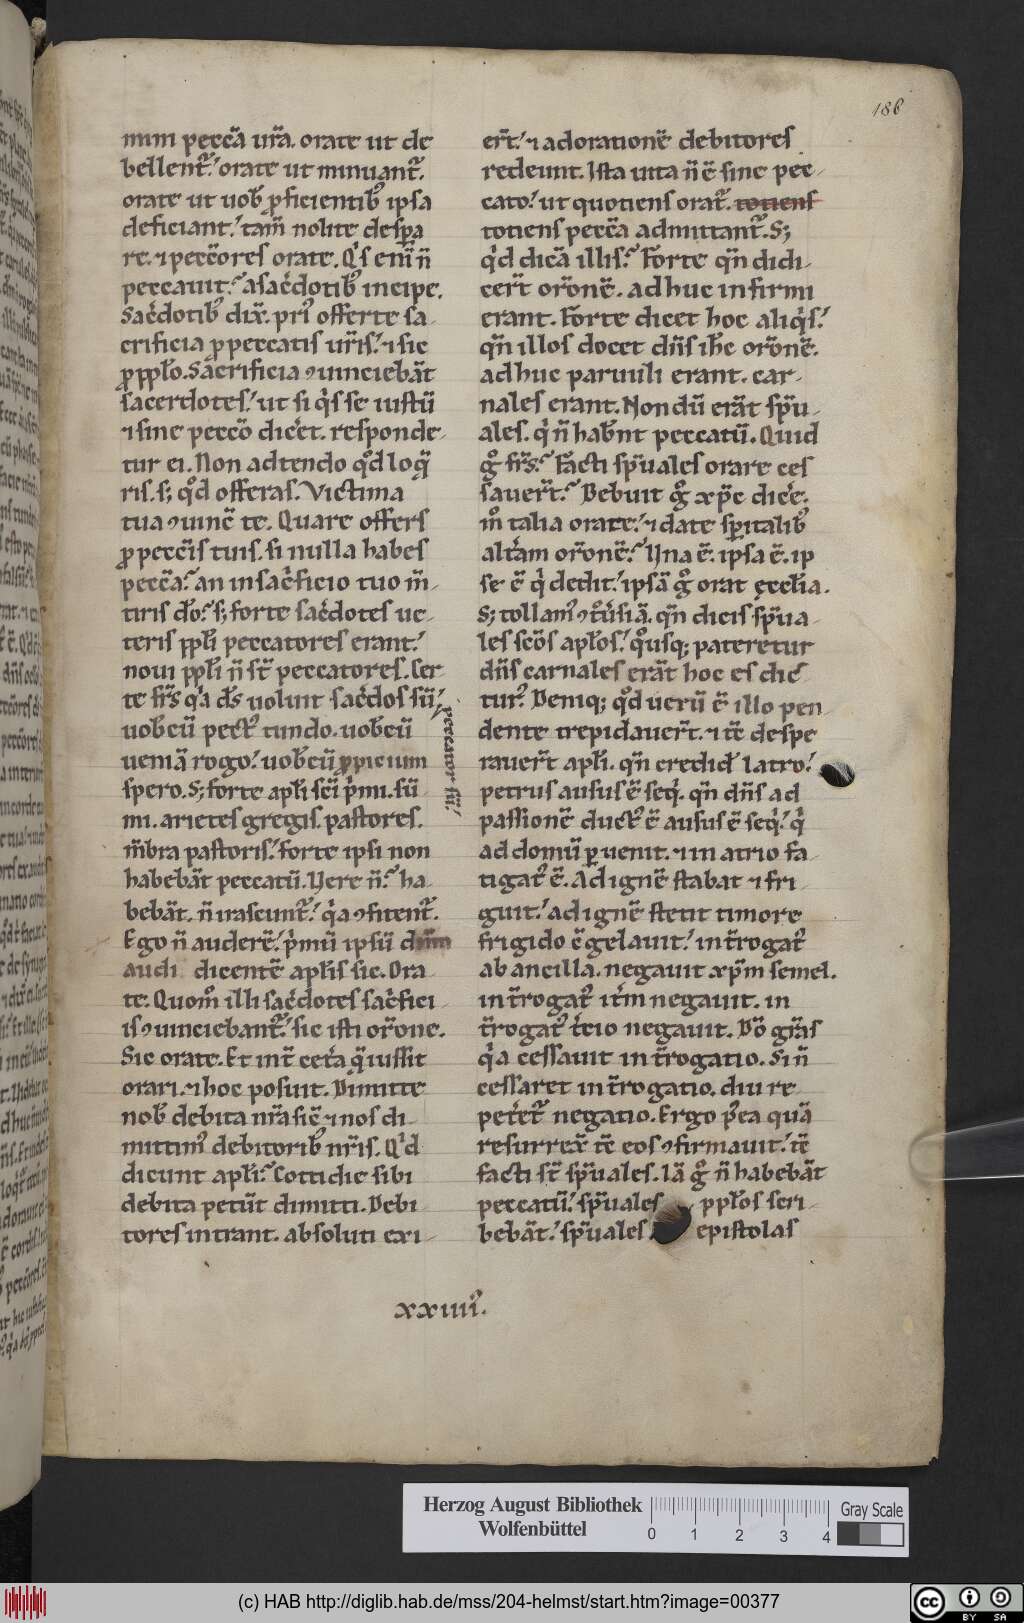 186
mini peccā ur̄a. orate ut de
bellent᷑.' orate ut minuant᷑.
orate ut uob̄ ꝓficientib; ipsa
deficiant.' tam̄ nolite despa
re. ⁊ peccōres orate. Qͥs eni n̄
peccauit? a sac̄dotib; incipe.
Sac̄dotib; dix̄. priꝰ offerte sa
crificia ꝓ peccatis ur̄is.' ⁊ sic
ꝓ ppl̄o. Sacrificia ꝯuinciebāt
sacerdotes.' ut si qͥs se iustū
⁊ sine peccō dic̄et. responde
tur ei. Non adtendo qͦd loq̄
ris. s; qͦd offeras. Victima
tua ꝯuinc̄ te. Quare offers
ꝓ pecc̄is tuis. si nulla habes
peccā? an in sac̄ficio tuo m̄
tiris dō? s; forte sac̄dotes ue
teris ppl̄i peccatores erant.'
noui ppl̄i n̄ st̄ peccatores. Cer
te fr̄s qͥa dꝰs uoluit sac̄dos sū.'
peccator sū.'
uob̄cū pectꝰ tundo. uob̄cū
ueniā rogo.' uob̄cū ꝓpicium
spero. S; forte apl̄i sc̄i pͥmi. sū
mi. arietes gregis. pastores.
m̄bra pastoris.' forte ipsi non
habebāt peccatū. Uere n̄? ha
bebāt. n̄ irascunt᷑.' qͥa ꝯfitent᷑.
Ego n̄ auderē.' pͥmū ipsū dn̄m
audi dicentē apl̄is sic. Ora
te. Quomͦ illi sac̄dotes sac̄fici
is ꝯuinciebant᷑.' sic isti or̄one.
Sic orate. Et int̄ cet̄a q̄ iussit
orari. ⁊ hoc posuit. Dimitte
nob̄ debita nr̄a sic̄ ⁊ nos di
mittimꝰ debitorib; nr̄is. Qͥd
dicunt apl̄i? Cottidie sibi
debita petūt dimitti. Debi
tores intrant. absoluti exi
er̄t.' ⁊ ad orationē debitores
redeunt. Ista uita n̄ ē sine pec
cato.' ut quotiens orat᷑. totiens
totiens peccā admittant᷑. S;
qͥd dicā illis? Forte qn̄ didi
cer̄t or̄onē. adhuc infirmi
erant. Forte dicet hoc aliqͥs.'
qn̄ illos docet dn̄s ih̄c or̄onē.
adhuc paruuli erant. car
nales erant. Nondū erāt sp̄u
ales. qͥ n̄ hab̄nt peccatū. Quid
gͦ fr̄s? Facti sp̄uales orare ces
sauer̄t? Debuit gͦ xp̄c dic̄e.
mͦ talia orate.' ⁊ date sp̄italib;
alt̄am or̄onē? Una ē. ipsa ē. ip
se ē qͥ dedit.' ipsā gͦ orat ęccl̄ia.
S; tollamꝰ ꝯt̄ūsiā. qn̄ dicis sp̄ua
les sc̄os apl̄os.' qͦusq; pateretur
dn̄s carnales erāt hoc es dic̄
turꝰ. Deniq; qͦd uerū ē illo pen
dente trepidauer̄t. ⁊ tc̄ despe
rauer̄t apl̄i. qn̄ credid̄ latro.'
petrus ausus ē seqͥ. qn̄ dn̄s ad
passionē ductꝰ ē ausus ē seqͥ.' qͥ
ad domū ꝑuenit. ⁊ in atrio fa
tigatꝰ ē. Ad ignē stabat ⁊ fri
guit.' ad ignē stetit timore
frigido cgelauit.' int̄rogatꝰ
ab ancilla. negauit xp̄m semel.
int̄rogatꝰ it̄m negauit. in
t̄rogatꝰ t̄cio negauit. Dō gr̄as
qͥa cessauit int̄rogatio. Si n̄
cessaret int̄rogatio. diu re
pet̄et᷑ negatio. Ergo pͦea quā
resurrex̄ tc̄ eos ꝯfirmauit.' tc̄
facti st̄ sp̄uales. Iā gͦ n̄ habebāt
peccatū? sp̄uales ppl̄os scri
bebāt.' sp̄uales epistolas
xxiiiiꝰ.
Herzog August Bibliothek
Wolfenbüttel
0 1 2 3 4
Gray Scale
(c) HAB http://diglib.hab.de/mss/204-helmst/start.htm?image=00377
cc BY SA